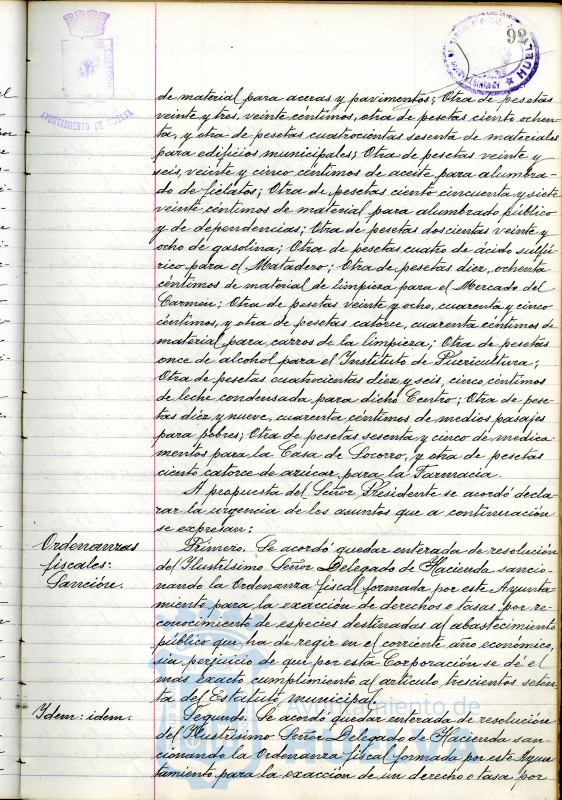 99
AYUNTAMIENTO DE HUELVA
HUELVA
de material para aceras y pavimentos; Otra de pesetas
veinte y tres, veinte céntimos, otra de pesetas ciento ochen-
ta, y otra de pesetas cuatrocientas sesenta de materiales
para edificios municipales; Otra de pesetas veinte y
seis, veinte y cinco céntimos de aceite para alumbra-
do de fielatos; Otra de pesetas ciento cincuenta y siete
veinte céntimos de material para alumbrado público
y de dependencias; Otra de pesetas doscientas veinte y
ocho de gasolina; Otra de pesetas cuatro de ácido sulfú-
rico para el Matadero; Otra de pesetas diez, ochenta
céntimos de material de limpieza para el Mercado del
Carmen; Otra de pesetas veinte y ocho, cuarenta y cinco
céntimos, y otra de pesetas catorce, cuarenta céntimos de
material para carros de la limpieza; Otra de pesetas
once de alcohol para el Instituto de Puericultura;
Otra de pesetas cuatrocientas diez y seis, cinco céntimos
de leche condensada para dicho Centro; Otra de pese-
tas diez y nueve, cuarenta céntimos de medios pasajes
para pobres; Otra de pesetas sesenta y cinco de medica
mentos para la Casa de Socorro, y otra de pesetas
ciento catorce de azúcar para la Farmacia.
A propuesta del Señor Presidente se acordó decla
rar la urgencia de los asuntos que a continuación
se expresan:
Ordenanzas
fiscales:
Sanción.
Primero. Se acordó quedar enterada de resolución
del Ilustrísimo Señor Delegado de Hacienda sancio-
nando la Ordenanza fiscal formada por este Ayunta-
miento para la exacción de derechos o tasas por re-
conocimiento de especies destinadas al abastecimiento
público que ha de regir en el corriente año económico,
sin perjuicio de que por esta Corporación se dé el
más exacto cumplimiento al artículo trescientos seten-
ta del Estatuto municipal.
Idem: idem.
Segundo. Se acordó quedar enterada de resolución
del Ilustrísimo Señor Delegado de Hacienda san-
cionando la Ordenanza fiscal formada por este Ayun-
tamiento para la exacción de un derecho o tasa por
Ayuntamiento de
HUELVA